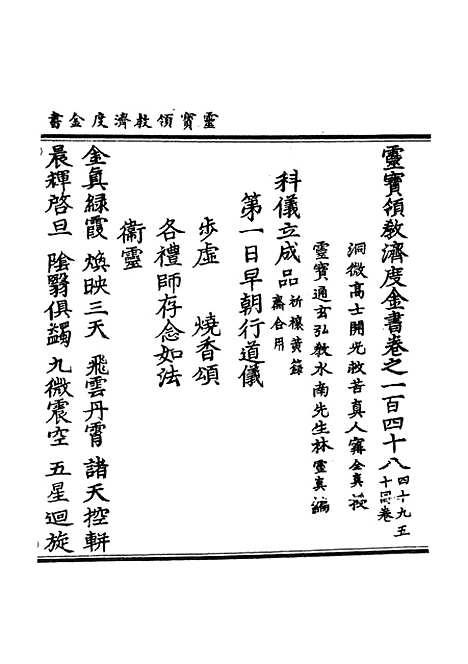 靈寶領教濟度金書
靈寶領教濟度金書卷之一百四十八 四十九五十同卷
洞微高士開光救苦真人甯全真授
靈寶通玄弘教水南先生林靈真編
科儀立成品 祈禳黃籙齋合用
第一日早朝行道儀
步虛 燒香頌
各禮師存念如法
衞靈
金真綠霞 煥映三天 飛雲丹霄 諸天控軿
晨輝啓旦 陰翳俱蠲 九微震空 五星迴旋